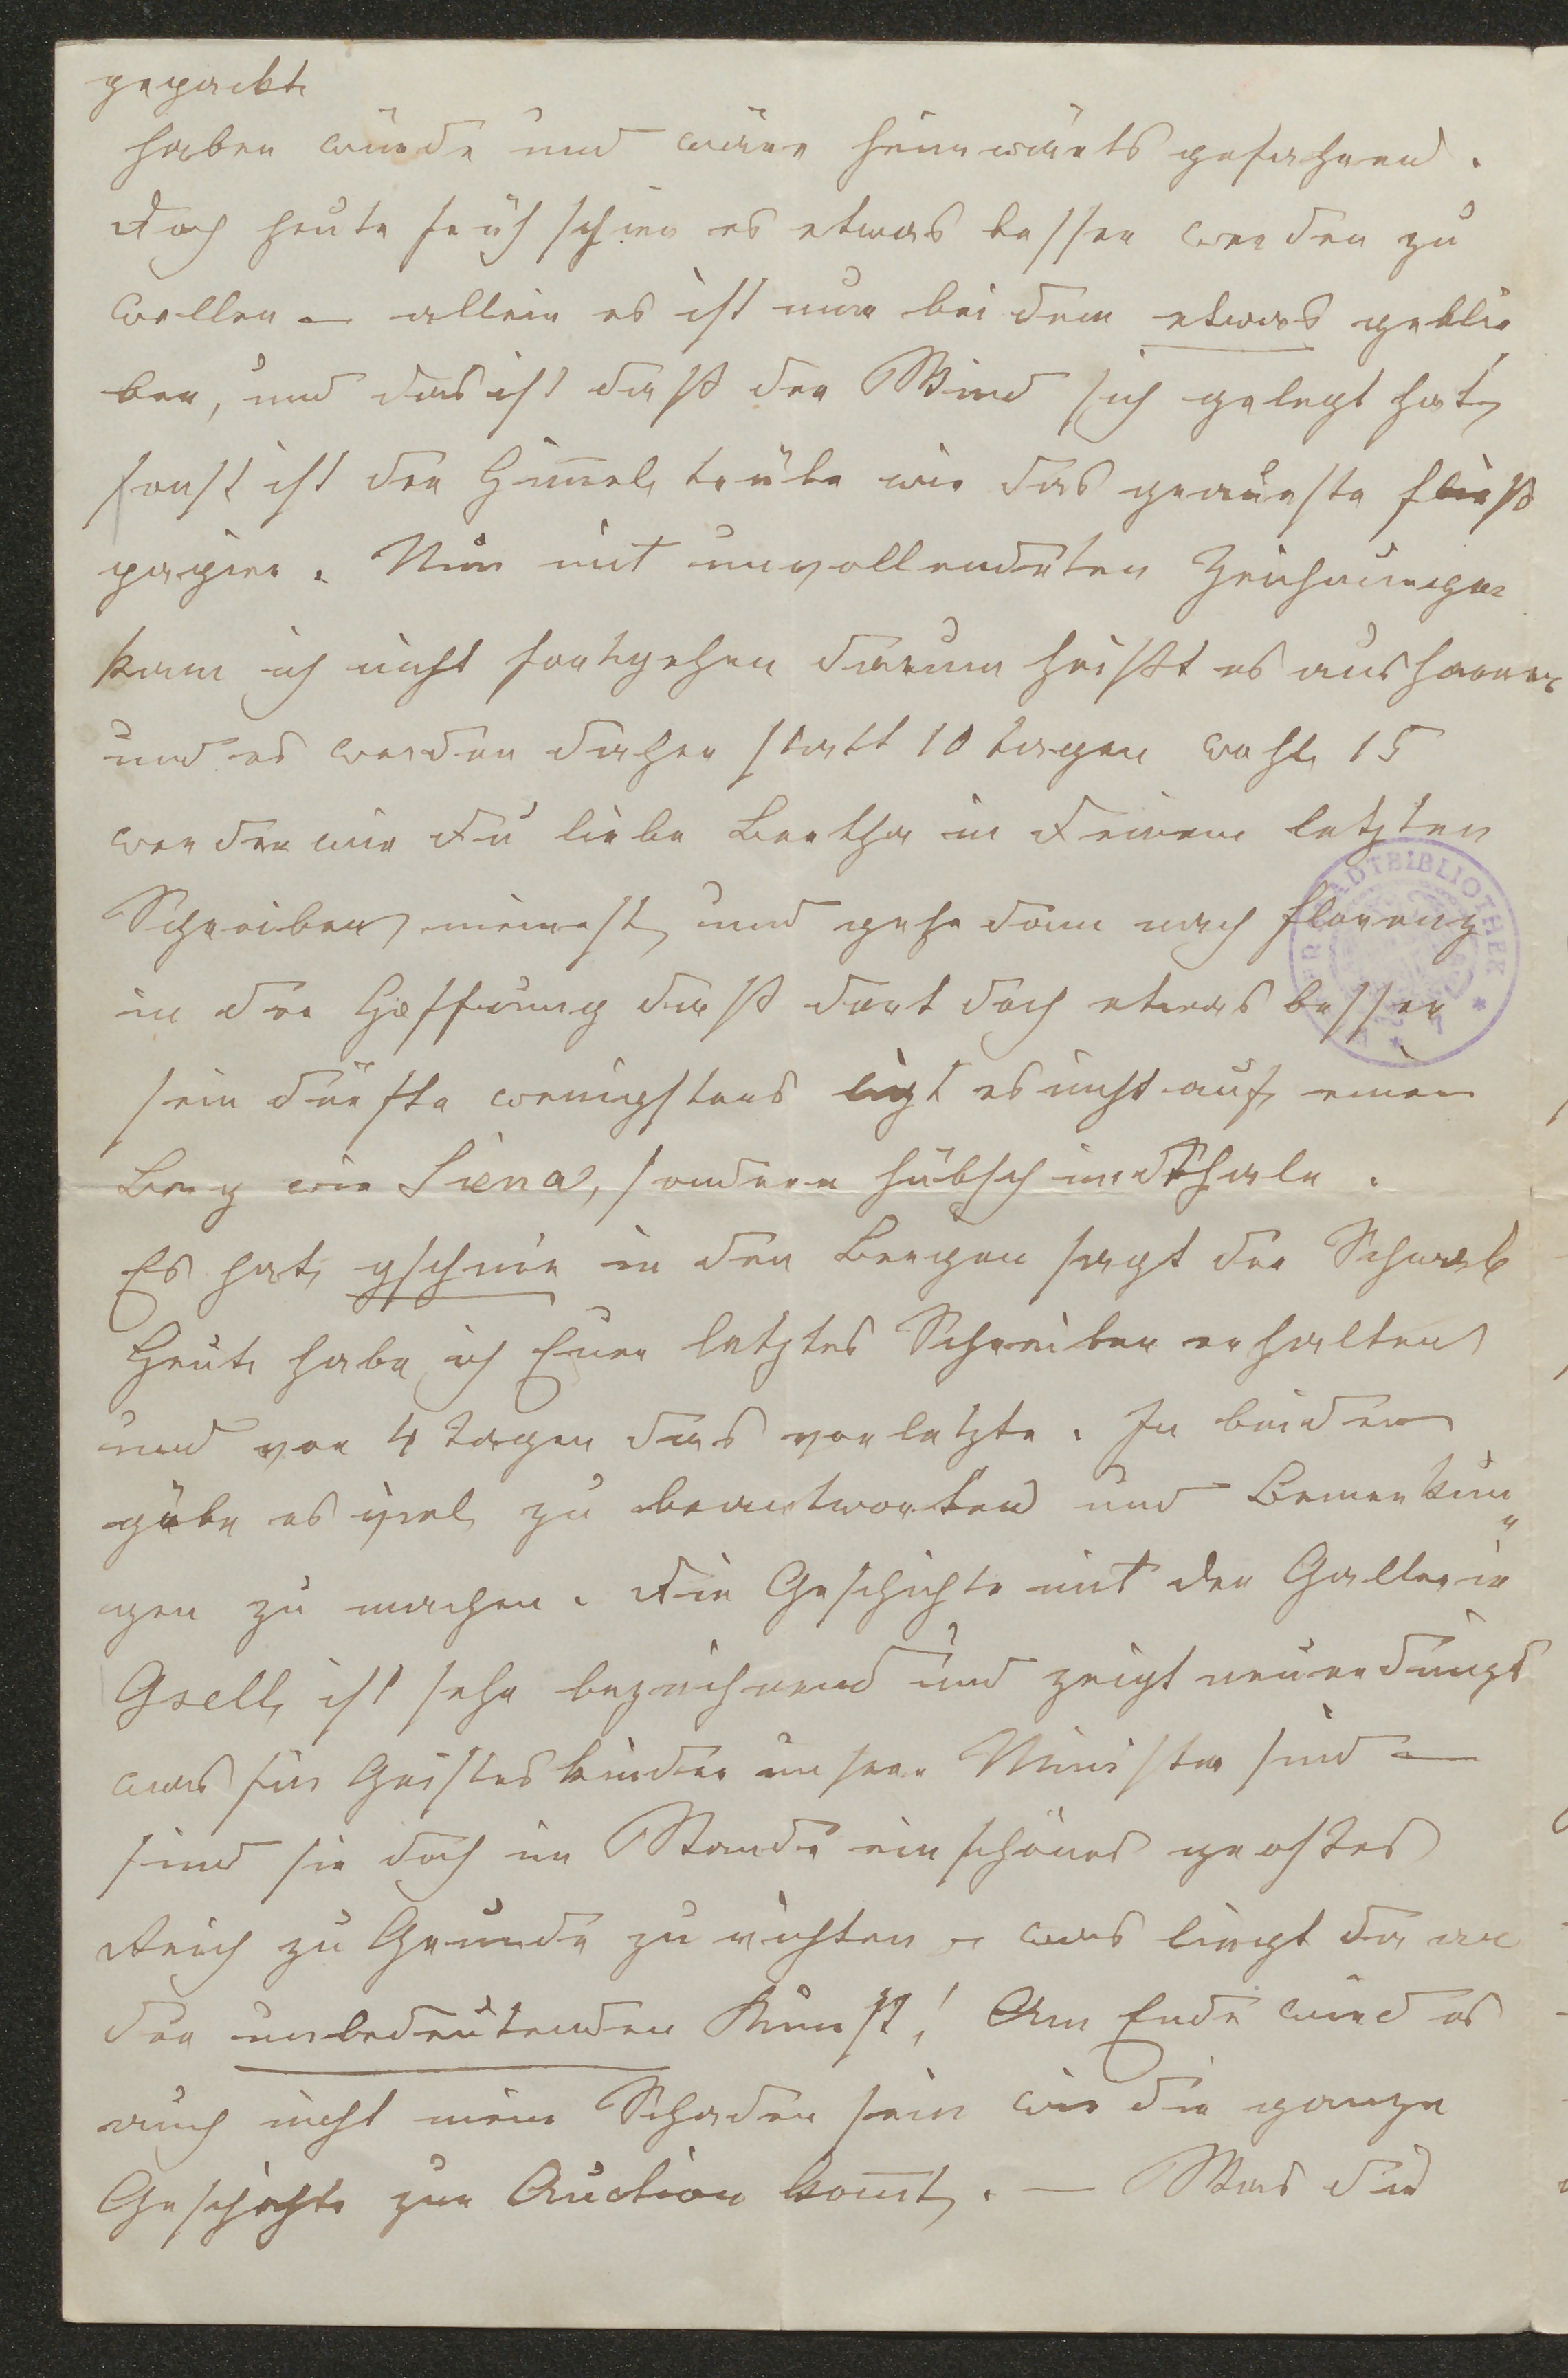 gepackt
haben würde und wäre heimwärts gefahren.
Doch heute früh schien es etwas besser werden zu
wollen – allein es ist nur bei dem etwas geblie
ben, und das ist daß der Wind sich gelegt hat,
sonst ist der Him̅el trübe wie das graueste Fließ
papier. Nun mit unvollendeten Zeichnungen
kann ich nicht fortgehen darum heißt es ausharren
und es werden daher statt 10 tagen wohl 15
werden wie Du liebe Bertha in Deinem letzten
Schreiben meinest, und gehe dann nach Florenz
in der Hoffnung daß dort doch etwas besser
sein dürfte wenigstens liegt es nicht auf einem
Berg wie Siena, sondern hübsch im Thale.
Es hat gschnie in den Bergen sagt der Schwab
Heute habe ich Euer letztes Schreiben erhalten
und vor 4 Tagen das vorletzte. In beiden
gäbe es viel zu beantworten und Bemerkun„
gen zu machen. Die Geschichte mit der Gallerie
Gsell ist sehr bezeichnend und zeigt neuerdings
was für Geisteskinder unsere Minister sind –
sind sie doch im Stande ein schönes großes
Reich zu Grunde zu richten – was liegt da an
der unbedeutenden Kunst! Am Ende wird es
auch nicht mein Schaden sein wie die ganze
Geschichte zur Auction kom̅t. – Was die
STADTBIBLIOTHEK